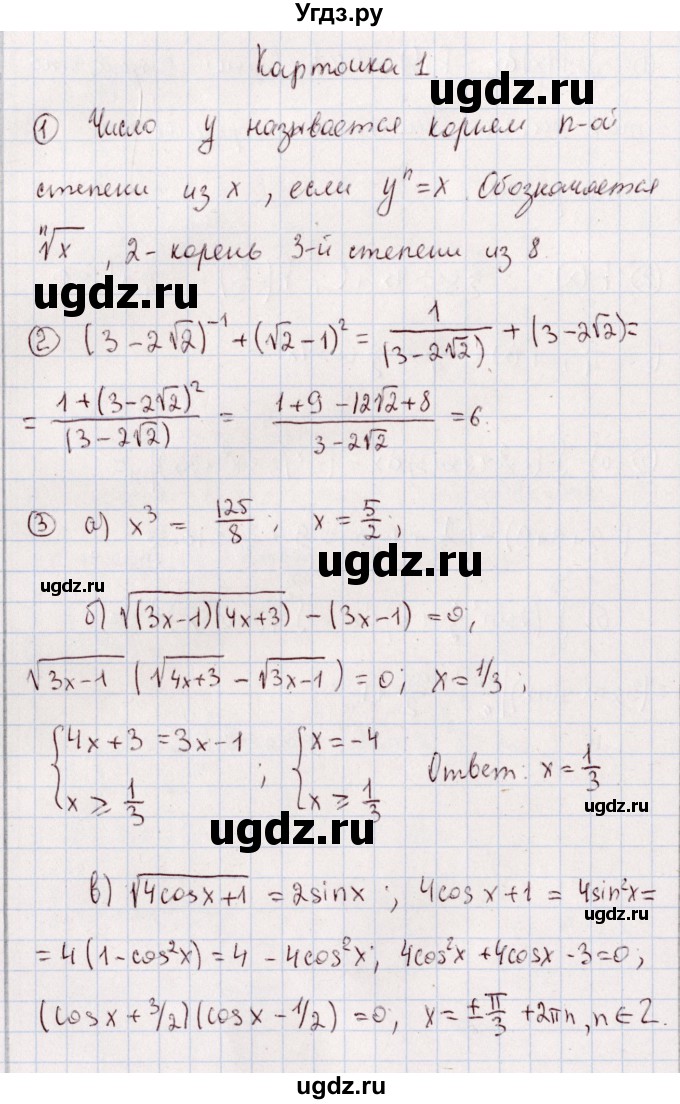 Угдз.ру
Карточка 1.
ugdz.ru
① Число y называется корнем n-ой
степени из x, если yⁿ=x Обозначается
ⁿ√x, 2- корень 3-й степени из 8.
ugdz.ru
② (3-2√2)⁻¹+(√2-1)² = 1/(3-2√2) + (3-2√2)=
= (1+(3-2√2)²)/(3-2√2) = (1+9-12√2+8)/(3-2√2) =6.
③ а) x³ = 125/8; x = 5/2;
ugdz.ru
ugdz.ru
б) √((3x-1)(4x+3)) - (3x-1) = 0;
√(3x-1) (√(4x+3) - √(3x-1)) = 0; x = 1/3;
{4x+3 = 3x-1; {x = -4
{x ≥ 1/3 {x ≥ 1/3 Ответ: x = 1/3
ugdz.ru
ugdz.ru
в) √(4cosx+1) = 2sinx; 4cos x+1 = 4sin²x=
= 4(1-cos²x) = 4 - 4cos²x; 4cos²x +4cosx -3=0;
(cosx + 3/2)(cosx - 1/2) = 0; x = ±π/3 + 2πn, n∈Z.
ugdz.ru
ugdz.ru